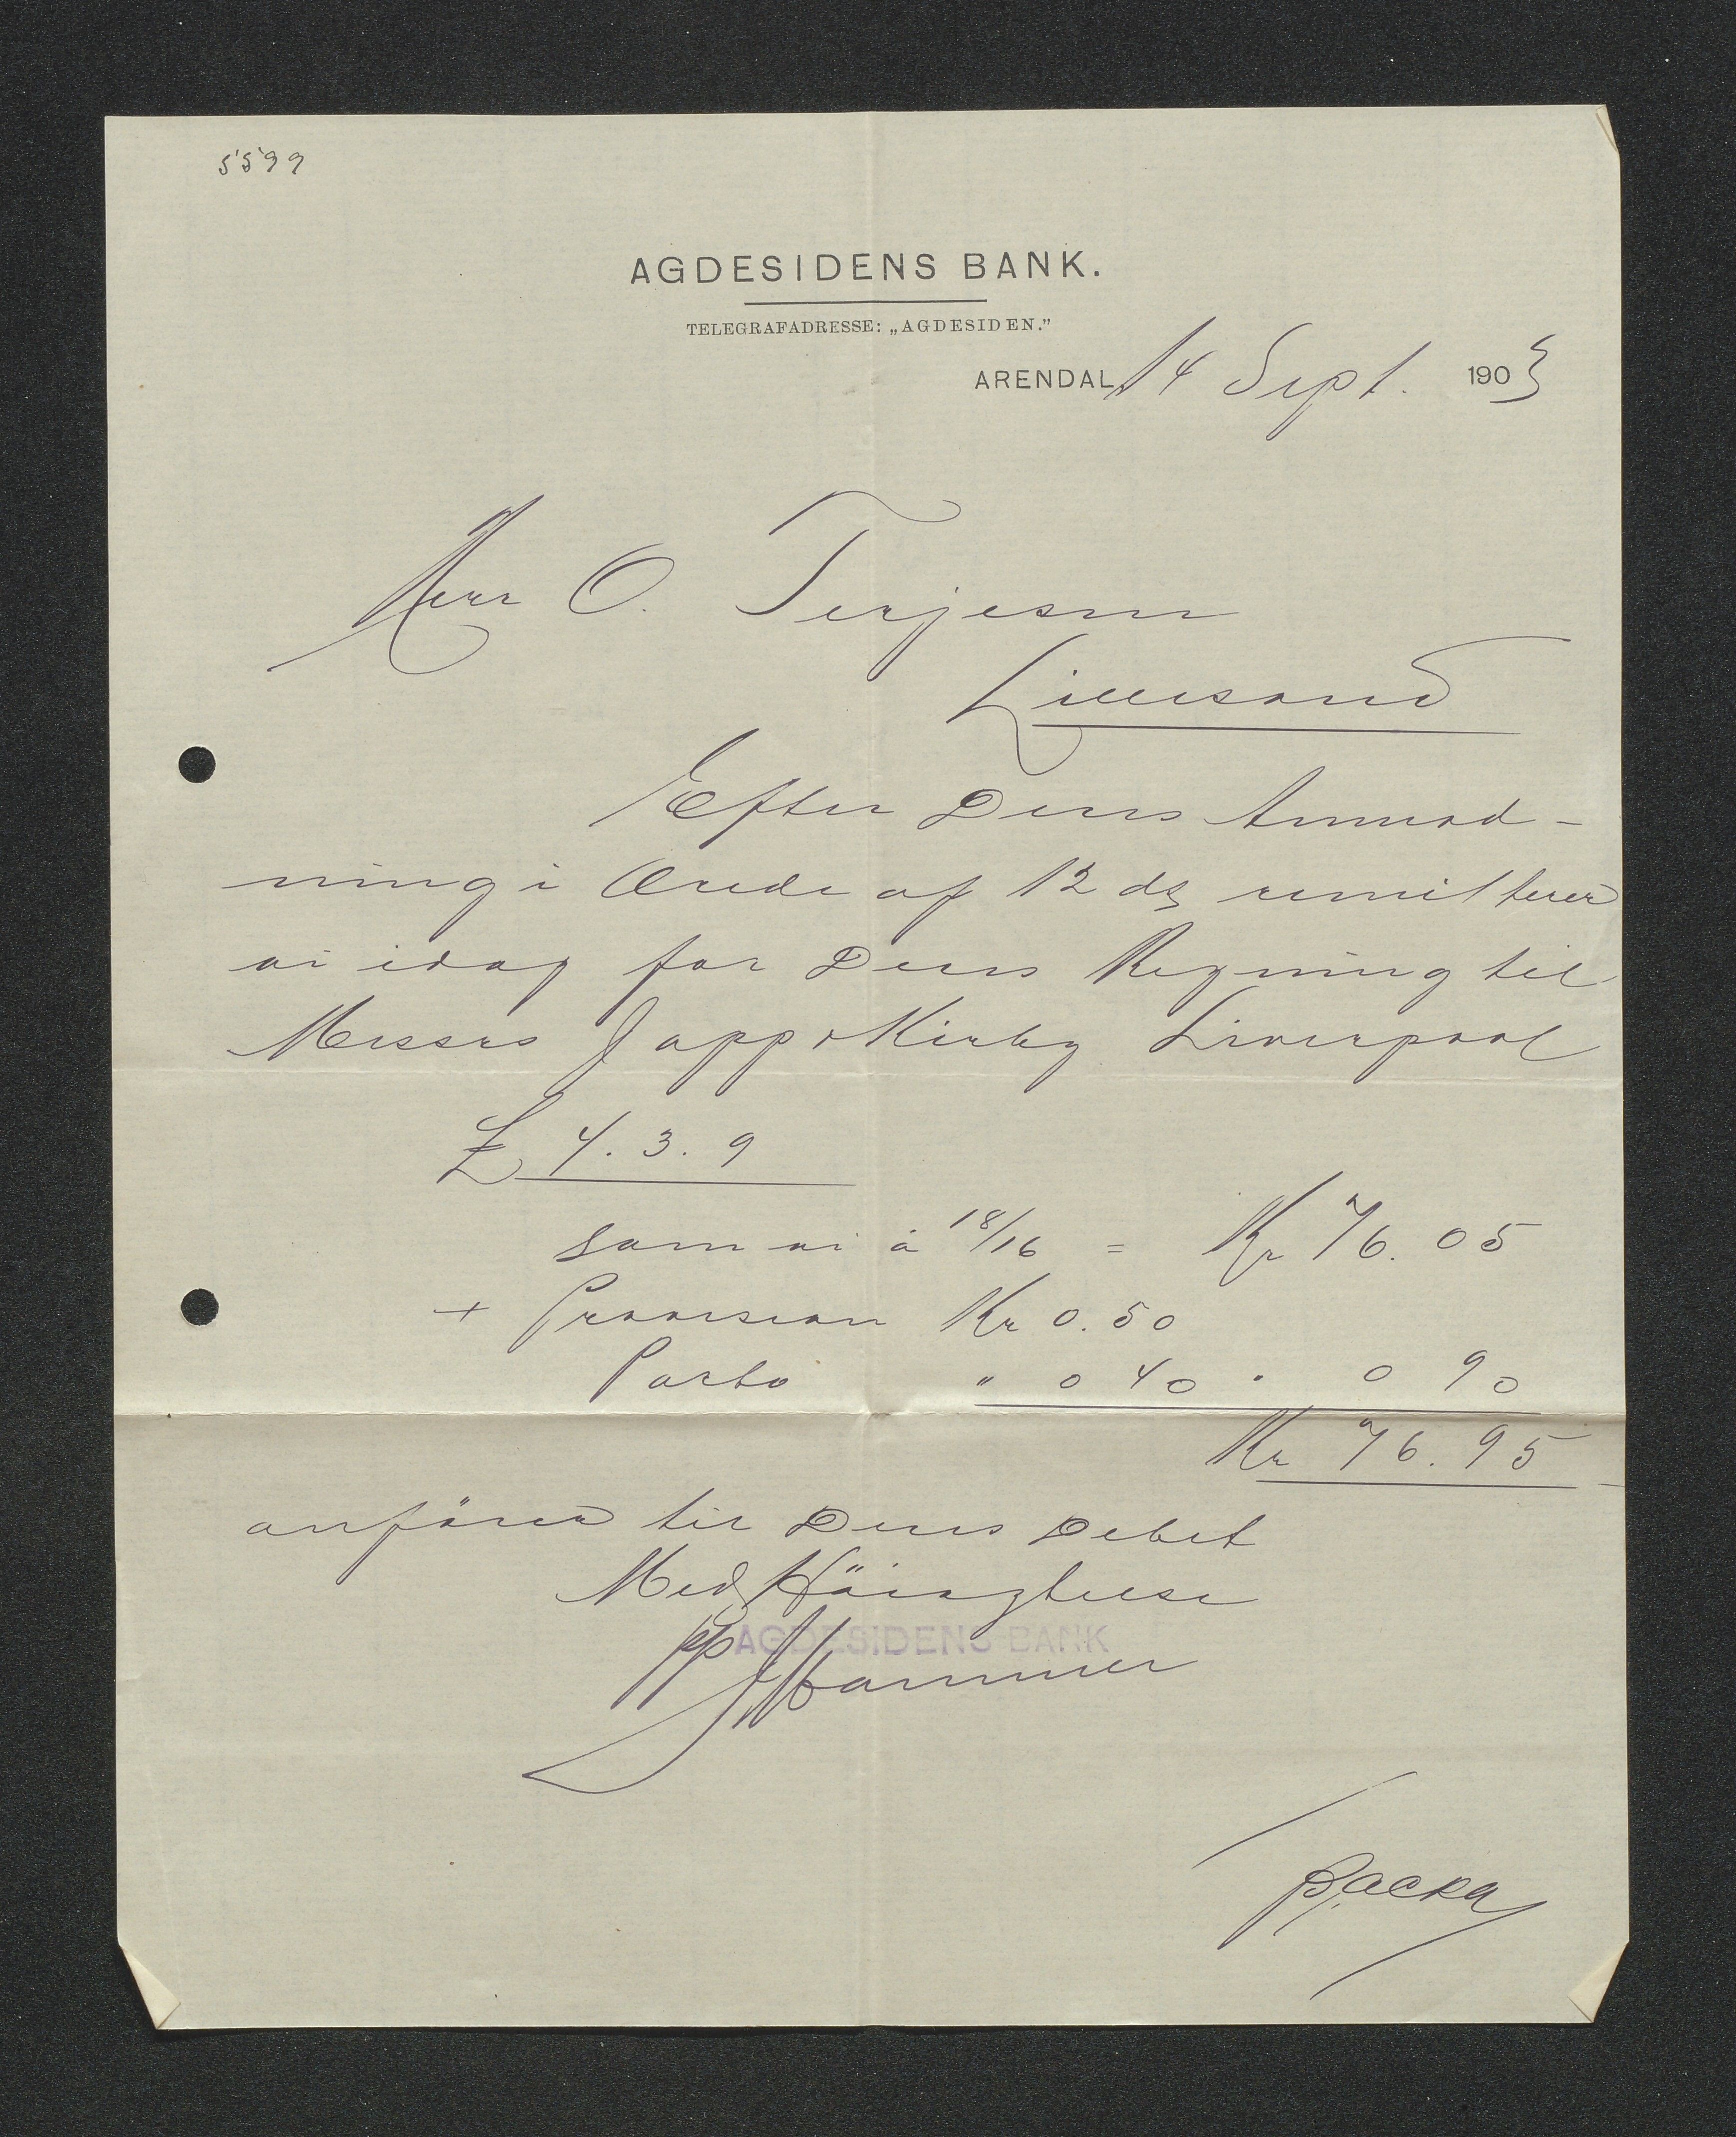 5599
AGDESIDENS BANK.
TELEGRAFADRESSE: „AGDESIDEN.”
ARENDAL, 14 Sept. 1903
Herr O. Terjesen
Lillesand
Efter Deres Anmod-
ning i Ærede af 12 ds remitterer
vi idag for Deres Regning til
Messrs Japp & Kirby Liverpool
£ 4.3.9
som vi à 18/16 = Kr 76.05
+ Provision Kr 0.50
Porto " 0 40 " 0 90
Kr 76.95
anfører til Deres Debet
Med Höiagtelse
pp AGDESIDENS BANK
Hammer